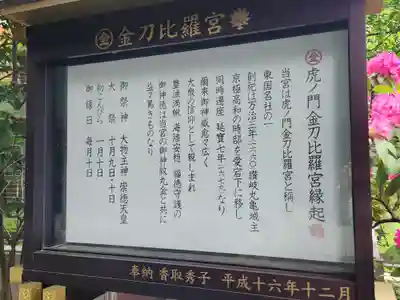 金刀比羅宮
虎ノ門金刀比羅宮縁起
当宮は虎ノ門金刀比羅宮と称し
東国名社の一
創祀は万治三年一六六〇讃岐丸亀城主
京極高和の時邸を愛宕下に移し
同時遷座 延宝七年一六七九なり
爾来御神威愈々広く
大衆の信仰として親しまれ
豊漁満帆 海陸安穏 福徳守護の
御神徳は当宮の御神紋丸金と共に
益々篤きものなり
御祭神 大物主神 崇徳天皇
大祭 十月九日・十日
初こんぴら 一月十日
御縁日 毎月十日
奉納 香取秀子 平成十六年十二月